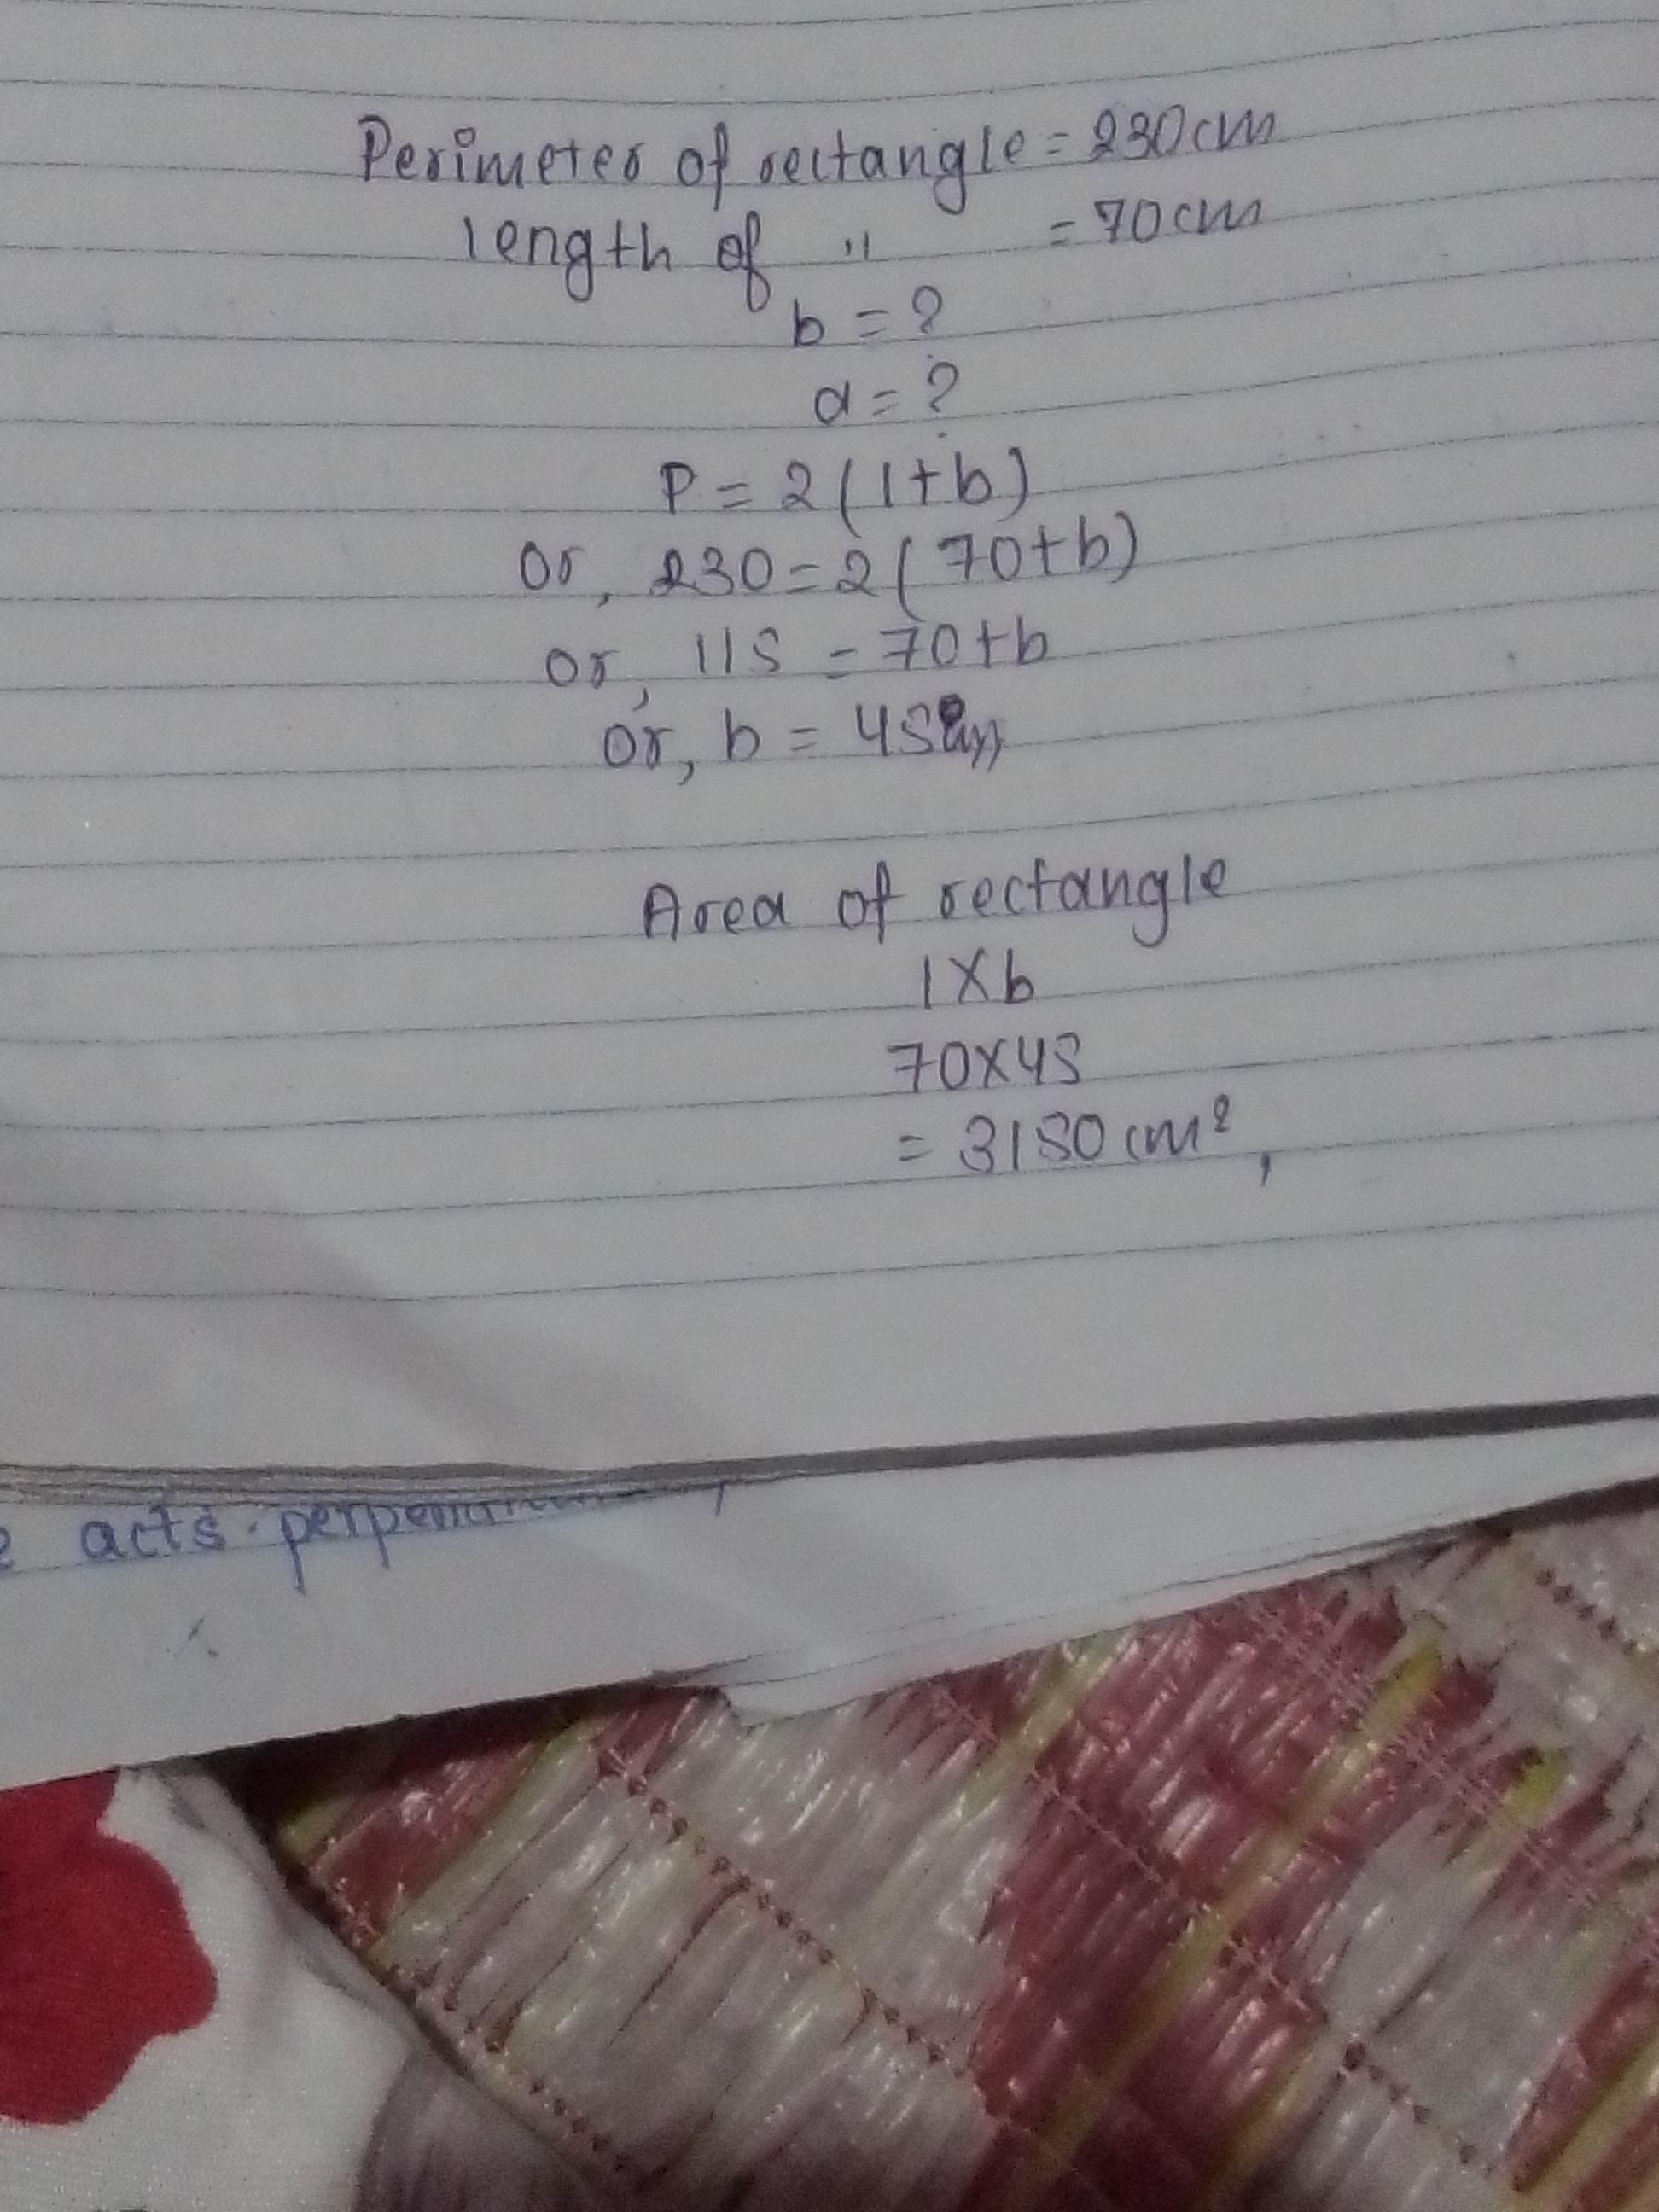 Perimeter of rectangle = 230cm
length of " = 70cm
b = ?
a = ?
P = 2(l+b)
or, 230 = 2(70+b)
or, 115 = 70+b
or, b = 45
Area of rectangle
l×b
70×45
= 3150 cm²,
acts